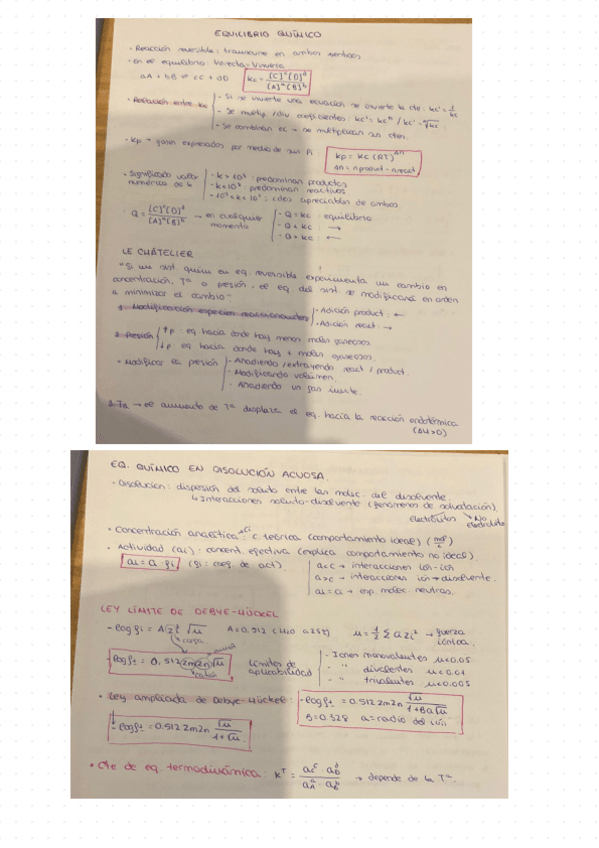 EQUILIBRIO QUÍMICO
- Reacción reversible: transcurre en ambos sentidos
- en el equilibrio: Vdirecta = Vinversa
aA + bB ⇌ cC + dD   Kc = [C]^c [D]^d / [A]^a [B]^b
- Relación entre Kc
- Si se invierte una ecuación se invierte la cte: Kc' = 1/Kc
- Se multip./div coeficientes: Kc' = Kc^n / Kc' = ⁿ√Kc
- Se combinan ec → se multiplican sus ctes.
- Kp → gases expresados por medio de sus Pi:
Kp = Kc (RT)^Δn
Δn = n product - n react
- Significado valor numérico de K
- K > 10³ : predominan productos
: predominan reactivos
: cdes apreciables de ambos
- Q = [C]^c [D]^d / [A]^a [B]^b → en cualquier momento
- Q = Kc : equilibrio
- Q < Kc : →
- Q > Kc : ←
LE CHÂTELIER
"Si un sist. químm en eq reversible experimenta un cambio en
concentración, Tª o presión, el eq del sist se modificará en orden
a minimizar el cambio"
1. Modificación especies reaccionantes
- Adición product: ←
- Adición react: →
2. Presión
↑p : eq hacia donde hay menos moles gaseosos
↓p eq hacia donde hay + moles gaseosos.
- Modificar la presión
- Añadiendo / extrayendo react / product.
- Modificando volumen.
- Añadiendo un gas inerte.
3. Tª → el aumento de Tª desplaza el eq. hacia la reacción endotérmica
(ΔH>0)
EQ. QUÍMICO EN DISOLUCIÓN ACUOSA.
- Disolución: dispersión del soluto entre las moléc. del disolvente.
↳ Interacciones soluto-disolvente (fenómenos de solvatación).
electrolitos No electrolito
- Concentración analítica: C. teórica (comportamiento ideal) (mol/L)
- Actividad (ai): concent. efectiva (explica comportamiento no ideal).
(γi: coef. de act.)
→ interacciones ión-ión
→ interacciones ión-disolvente.
→ esp. moléc. neutras.
LEY LÍMITE DE DEBYE-HÜCKEL
A = 0.512 (H₂O a 25ºC)
μ = 1/2 Σ ci zi² → fuerza iónica.
carga
Límites de aplicabilidad
- Iones monovalentes μ<0.05
- " divalentes μ<0.01
- " trivalentes μ<0.005
- Ley ampliada de Debye-Hückel:
B = 0.328   a = radio del ión
• Cte de eq. termodinámica: K^T = aC^c · aD^d / aA^a · aB^b → depende de la Tª.